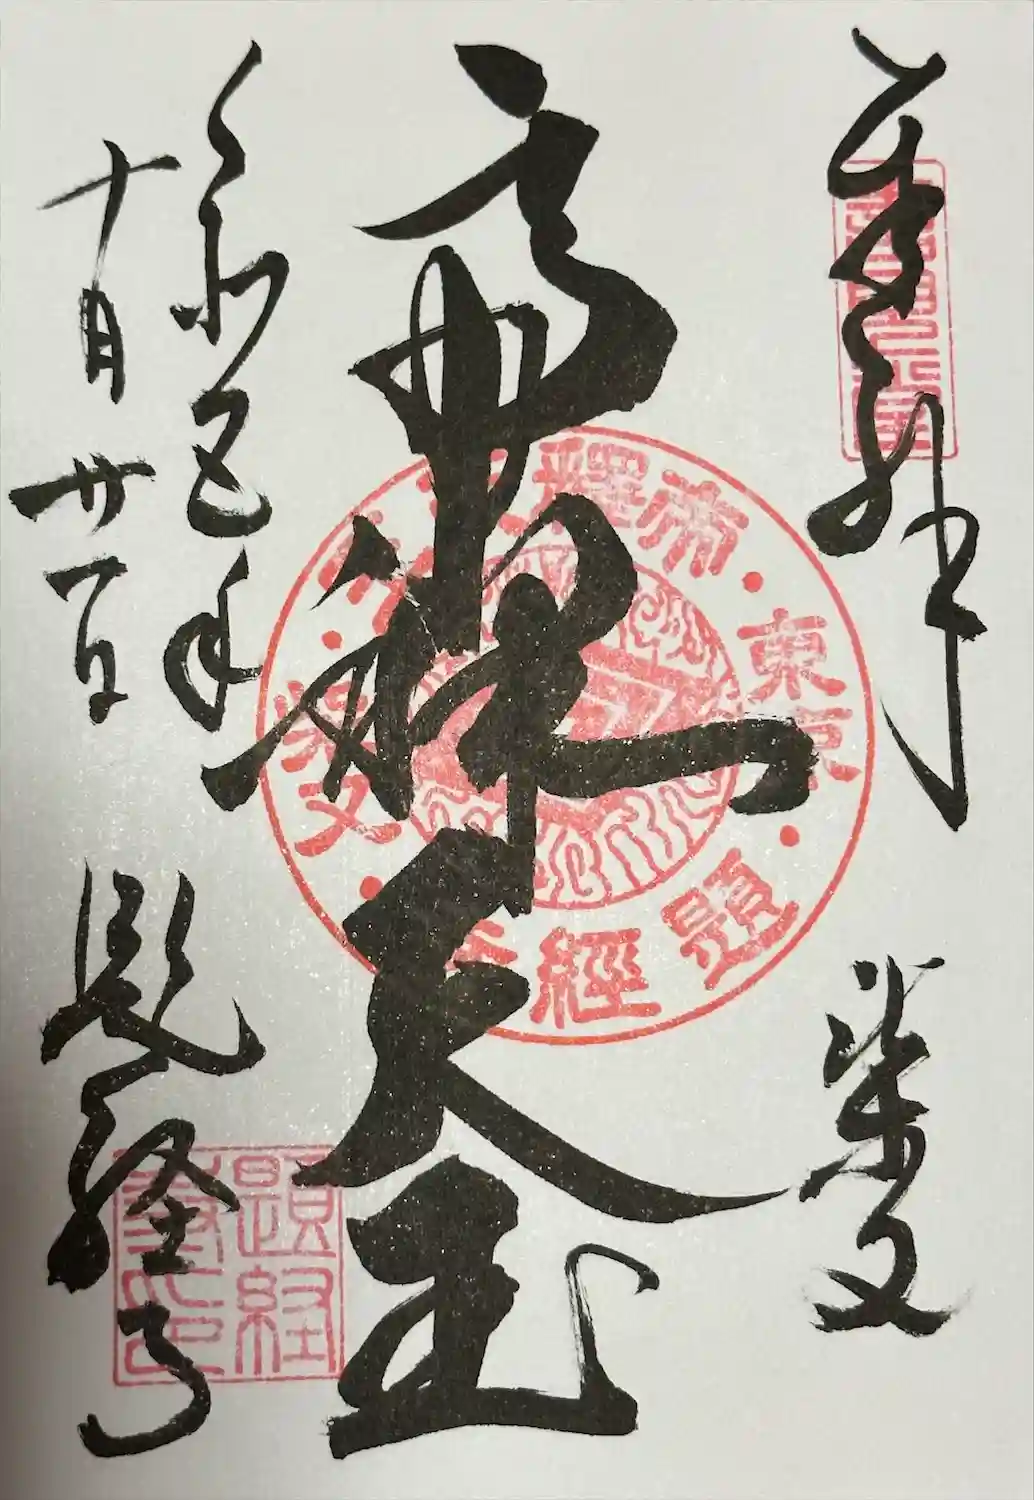 奉拝
柴又
帝釈天王
令和五年
十月廿一日
題経寺
東京
題經寺
柴又
題経寺印